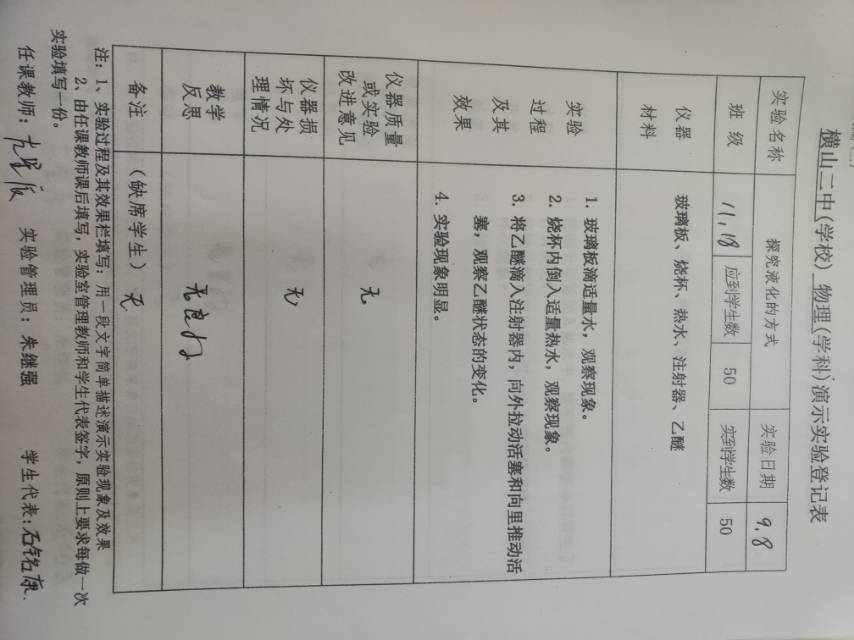 横山二中(学校) 物理(学科)演示实验登记表
实验名称 探究液化的方式 实验日期 9.8
班级 11,18 应到学生数 50 实到学生数 50
仪器
材料
玻璃板、烧杯、热水、注射器、乙醚
实验
过程
及其
效果
1. 玻璃板滴适量水，观察现象。
2. 烧杯内倒入适量热水，观察现象。
3. 将乙醚滴入注射器内，向外拉动活塞和向里推动活
塞，观察乙醚状态的变化。
4. 实验现象明显。
仪器质量
或实验
改进意见
无
仪器损
坏与处
理情况
无
教学
反思
备注 (缺席学生) 无
注：1、实验过程及其效果栏填写：用一段文字简单描述演示实验现象及效果
2、由任课教师课后填写，实验室管理教师和学生代表签字，原则上要求每做一次
实验填写一份。
任课教师： 实验管理员：朱继强 学生代表：石铭康.